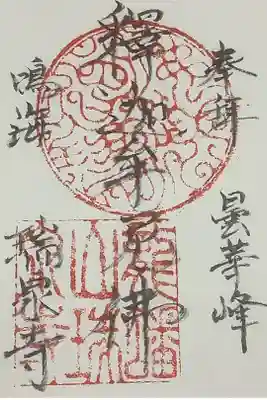 奉拝
曇華峰
釋迦牟尼佛
鳴海
瑞泉寺